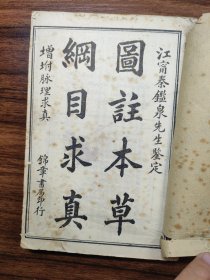 江甯秦鑑泉先生鉴定
圖註本草
綱目求真
增坿脉理求真
錦章書局印行